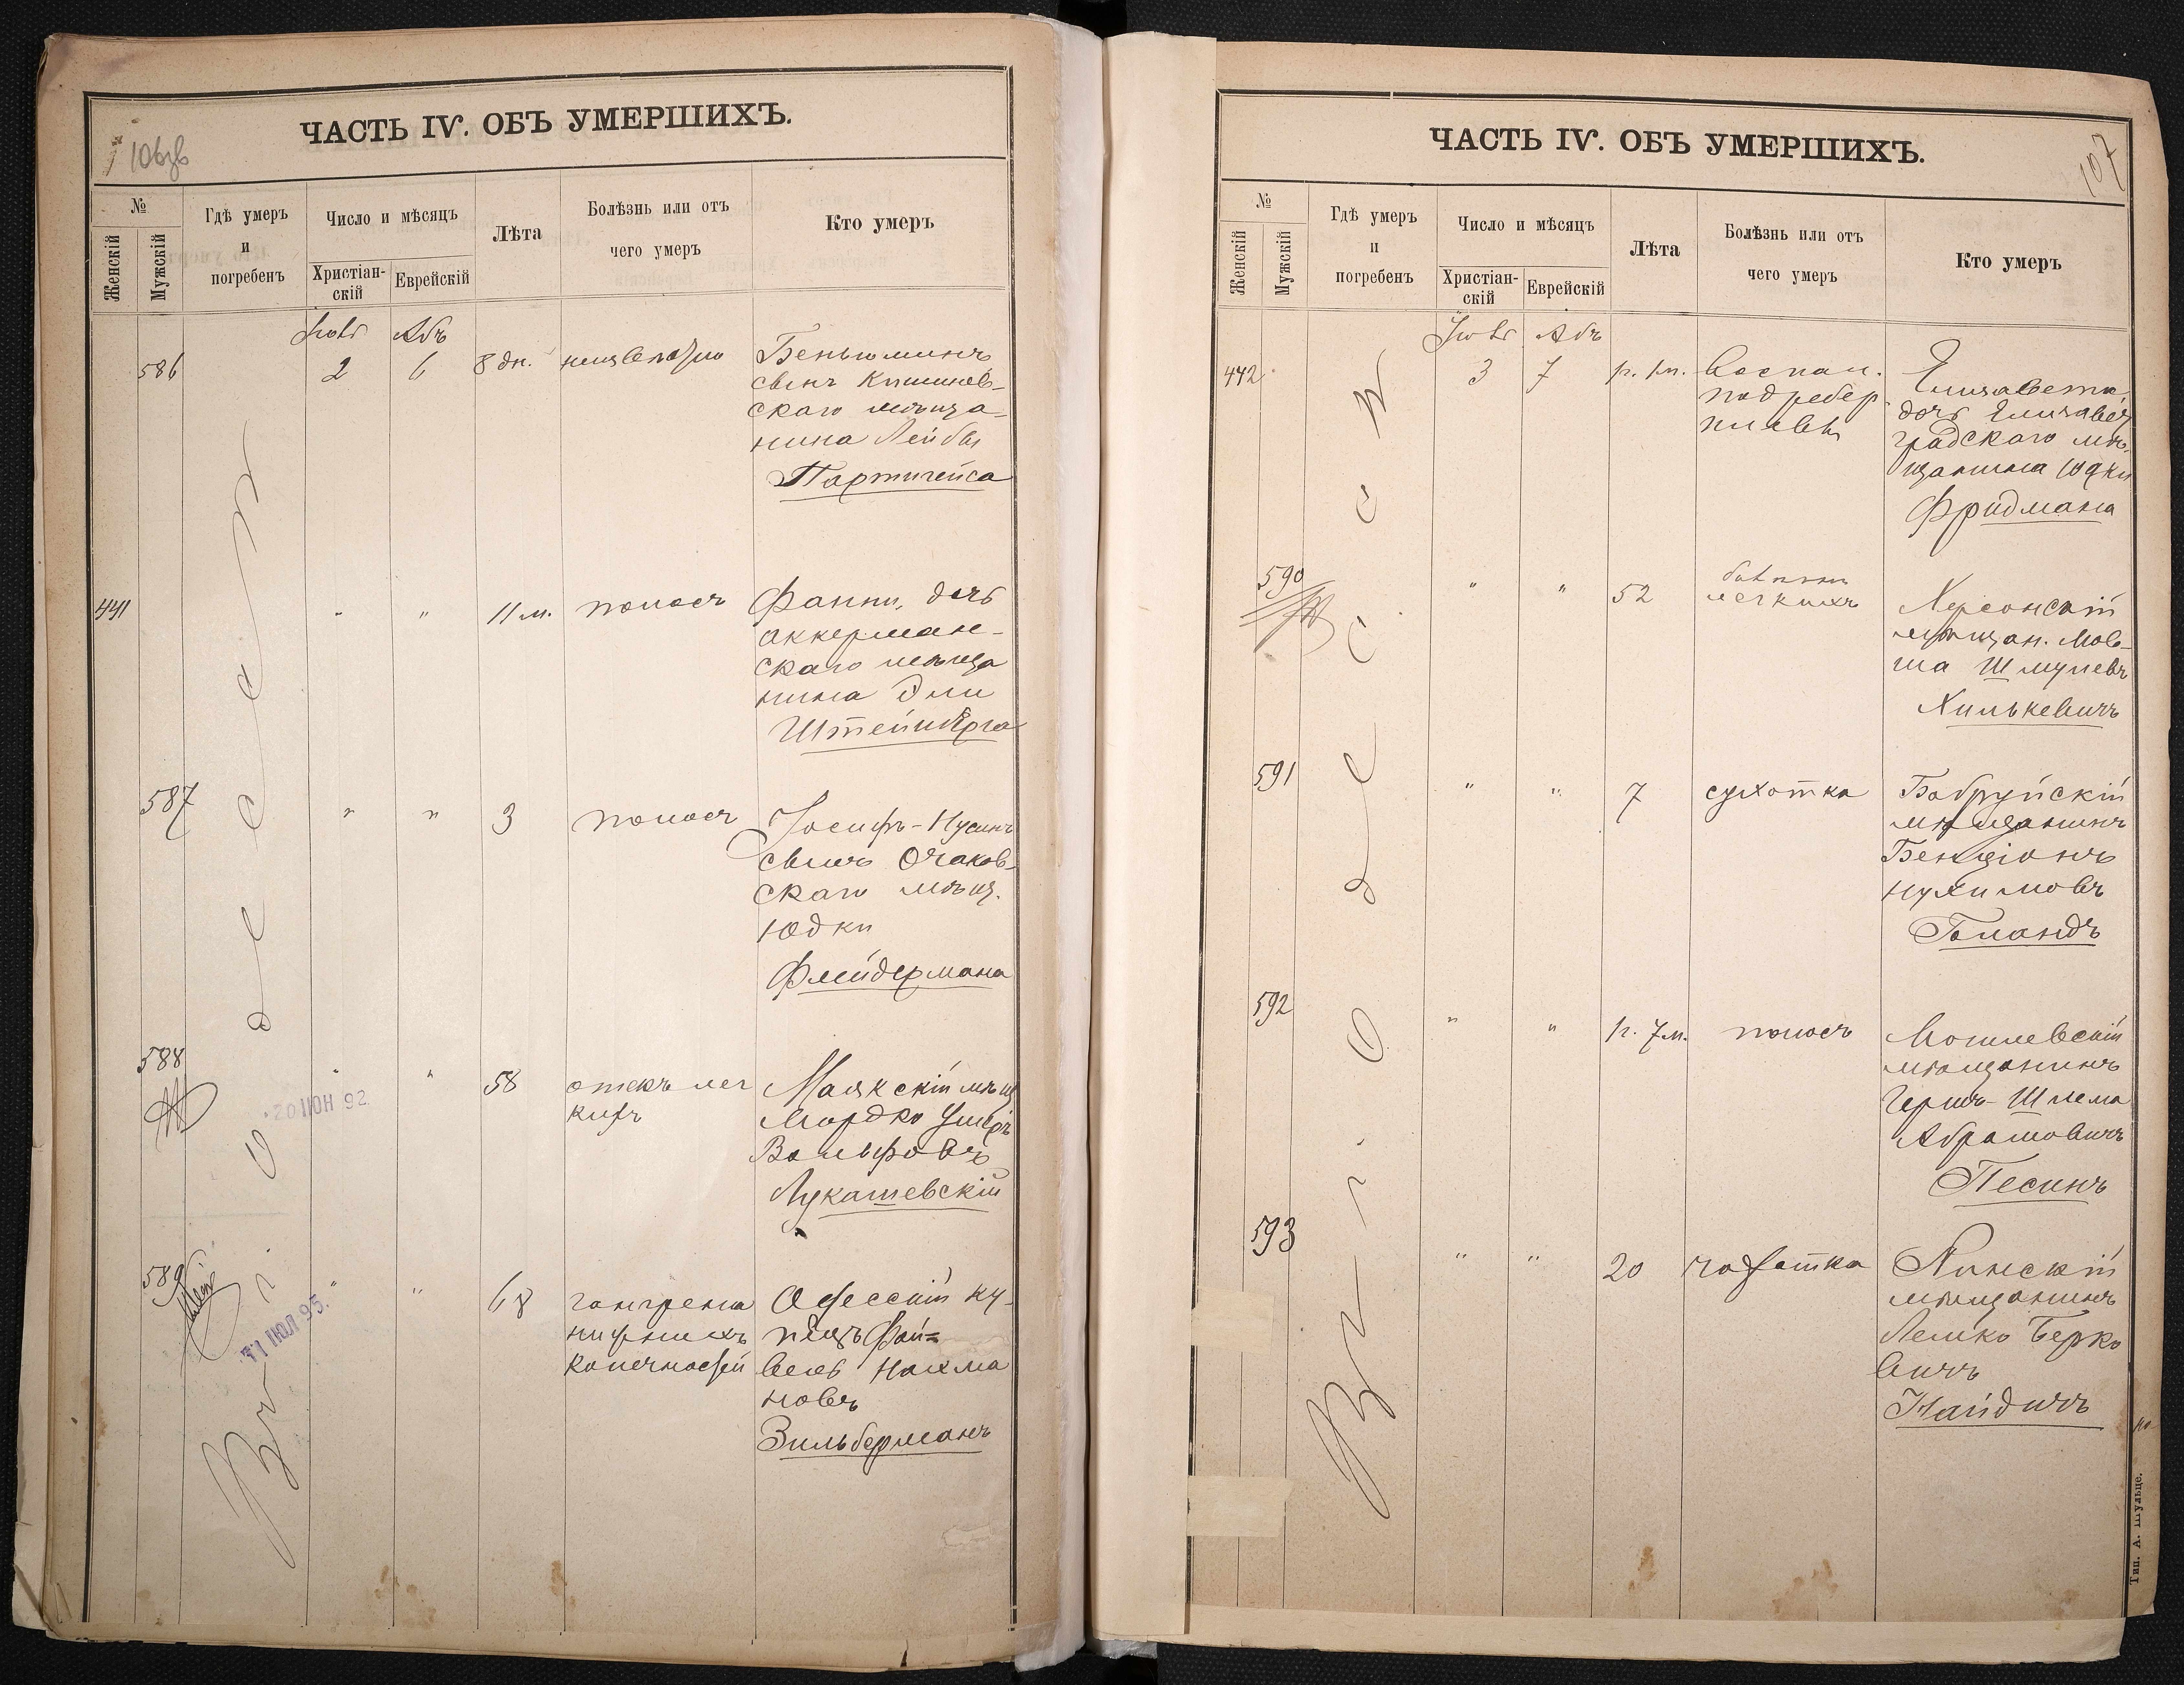 ЧАСТЬ IV. ОБЪ УМЕРШИХЪ.
№
Женскій
Мужскій
Гдѣ умеръ
и
погребенъ
Число и мѣсяцъ
Христіан-
скій
Еврейскій
Лѣта
Болѣзнь или отъ
чего умеръ
Кто умеръ
Въ г. Одессѣ
Абъ
586
2
6
8 дн.
неизвѣстно
Беньюминъ
сынъ Кишинев-
скаго мѣща-
нина Лейбы
Портигейса
441
"
"
11 м.
поносъ
Фанни, дочь
аккерман-
скаго мѣща
нина Эли
Штейнберга
587
"
"
3
поносъ
Іосифъ-Нусинъ
сынъ Очаков-
скаго мѣщ.
Юдки
Флейдермана
588
"
"
58
отекъ лег
кихъ
Маякскій мѣщ
Мордко Ушеръ
Вольфовъ
Лукашевскій
20 ІЮН 92
589
"
"
68
гангрена
нижнихъ
конечностей
Одесскій ку-
пецъ Фай-
вель Нахма
новъ
Зильберманъ
11 ІЮЛ 95.
ЧАСТЬ IV. ОБЪ УМЕРШИХЪ.
107
№
Женскій
Мужскій
Гдѣ умеръ
и
погребенъ
Число и мѣсяцъ
Христіан-
скій
Еврейскій
Лѣта
Болѣзнь или отъ
чего умеръ
Кто умеръ
Въ г. Одессѣ
Абъ
442
3
7
воспал.
подребер
плевы
Елизавета
дочь Елизавет
градскаго мѣ
щанина Юдки
Фридмана
590
"
"
52
легкихъ
Херсонскій
мѣщан. Мов-
ша Шмулевъ
Хилькевичъ
591
"
"
7
сухотка
Бобруйскій
мѣщанинъ
Бенціонъ
Нухимовъ
Голандъ
592
"
"
1 г. 7 м.
поносъ
Могилевскій
мѣщанинъ
Гершъ-Шлема
Абрамовичъ
Песинъ
593
"
"
20
чахотка
Пинскій
мѣщанинъ
Лейко Берко
вичъ
Найдичъ
Тип. А. Шульце.